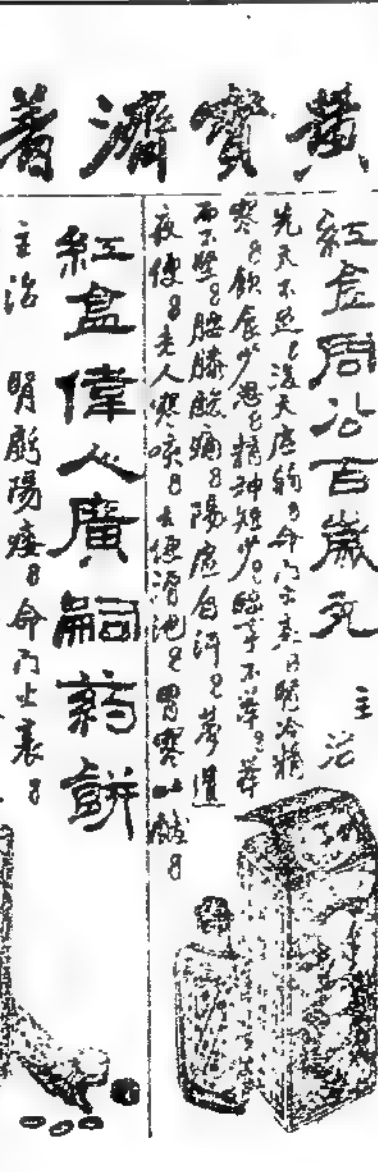 黃寶濟著
紅盒周公百歲丸 主治
先天不足、後天虛弱、命門火衰、腎冷精
寒、飲食少思、精神短少、臨事不舉、舉
而不堅、腰膝酸痛、陽虛自汗、夢遺
夜便、老人寒咳、大便滑泄、胃寒
紅盒偉人廣嗣葯餅
主治 腎虧陽痿、命門火衰、